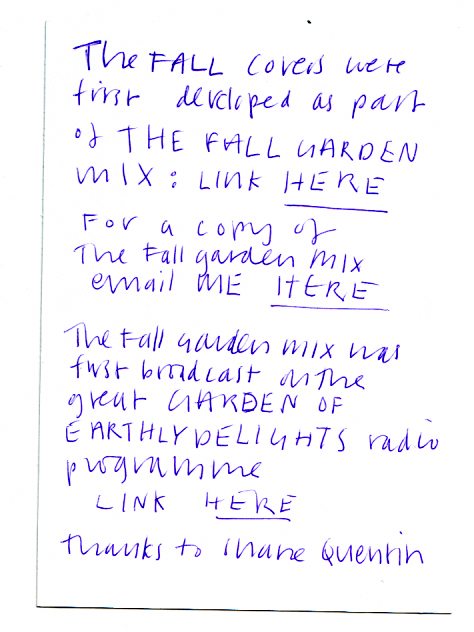 The FALL covers were
first developed as part
of THE FALL GARDEN
MIX: LINK HERE
FOR a copy of
The Fall garden MIX
email ME HERE
The Fall garden mix was
first broadcast on the
great GARDEN OF
EARTHLY DELIGHTS radio
programme
LINK HERE
thanks to Shane Quentin